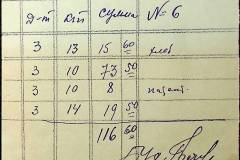 Д-т К-т сумма № 6
3 13 15 60 хлеб
3 10 73 50
3 10 8
3 14 19 50
116 60